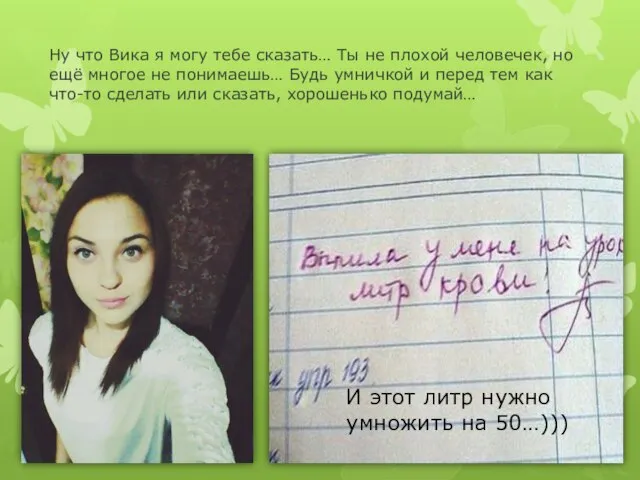 Ну что Вика я могу тебе сказать… Ты не плохой человечек, но
ещё многое не понимаешь… Будь умничкой и перед тем как
что-то сделать или сказать, хорошенько подумай…
Выпила у меня на урок
литр крови!
упр 193
И этот литр нужно
умножить на 50…)))